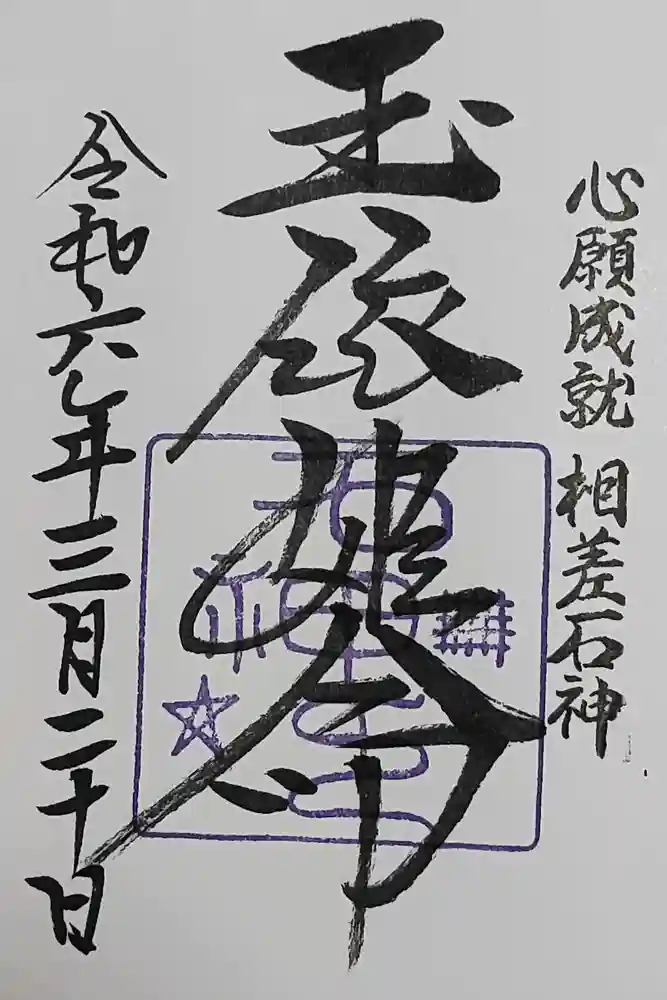 心願成就 相差石神
玉依姫命
令和六年三月二十日